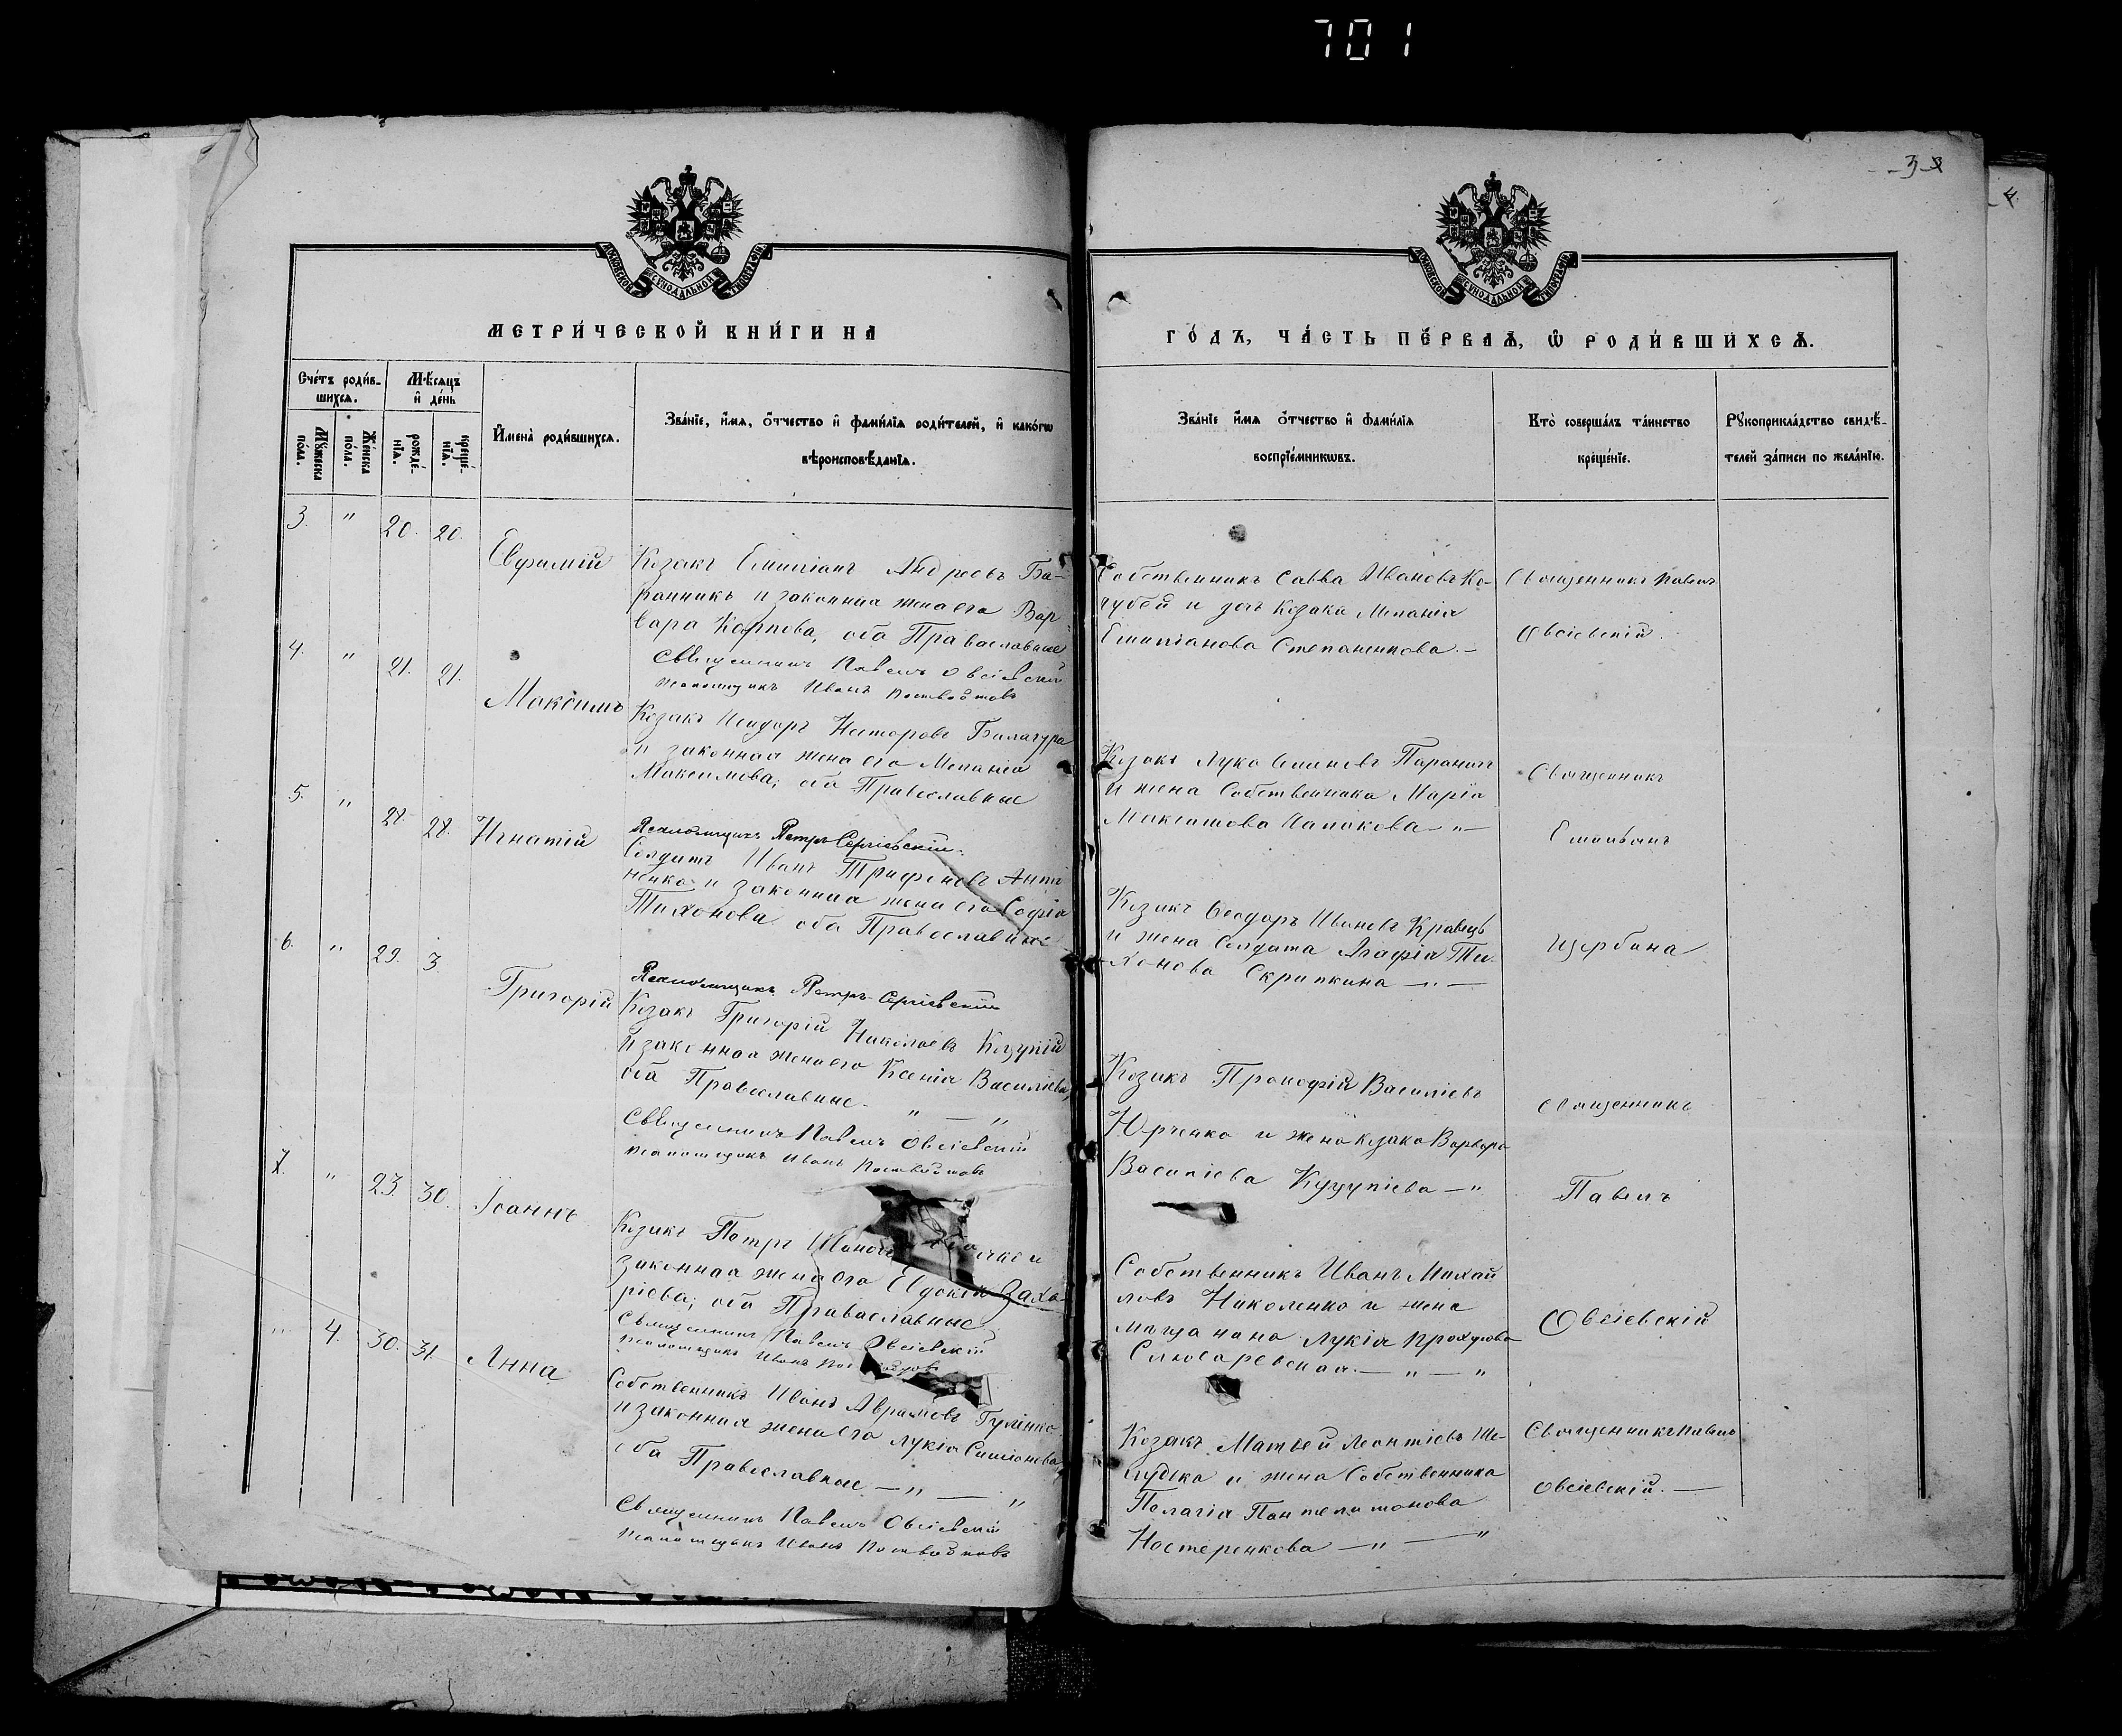 701
3
4.
МОСКОВСКОЙ СѴНОДАЛЬНОЙ ТИПОГРАФІИ
МОСКОВСКОЙ СѴНОДАЛЬНОЙ ТИПОГРАФІИ
МЕТРИ́ЧЕСКОЙ КНИ́ГИ НА
ГО́ДЪ, ЧА́СТЬ ПЕ́РВАѦ, Ѡ҆ РОДИ́ВШИХСѦ.
Сче́тъ роди́в-
шихсѧ.
Мѣ́сѧцъ
и҆ де́нь
Мꙋ́жеска по́ла.
Же́нска по́ла.
рожде́-
нїѧ.
креще́-
нїѧ.
И҆мена̀ роди́вшихсѧ.
Зва́нїе, и҆́мѧ, ѻ҆́тчество и҆ фами́лїѧ роди́телей, и҆ како́гѡ
вѣроисповѣ́данїѧ.
Зва́нїе и҆́мѧ ѻ҆́тчество и҆ фами́лїѧ
воспрїе́мникѡвъ.
Кто̀ соверша́лъ та́инство
креще́нїе.
Рꙋкоприкла́дство свидѣ́-
телей за́писи по жела́нїю.
3. " 20. 20.
Евфимій
Козакъ Емиліанъ Андреевъ Ба-
ранникъ и законная жена его Вар-
вара Карпова, оба Православные
Священникъ Павелъ Овсіевскій
Псаломщикъ Иванъ
Собственникъ Савва Ивановъ Ко-
чубей и дочь Козака Меланія
Емиліанова Степаненкова. –
Священникъ Павелъ
Овсіевскій.
4. " 21. 21.
Максимъ
Козакъ Исидоръ Несторовъ Балагура
и законная жена его Меланія
Максимова, оба Православные
Псаломщикъ Петръ Сергіевскій.
Козакъ Лука
и жена Собственника Марія
Максимова – " –
Священникъ
5. " 28. 28.
Игнатій
Солдатъ Иванъ Трифоновъ Анти-
ненко и законная жена его Софія
Тихонова оба Православные
Псаломщикъ Петръ Сергіевскій
Козакъ Феодоръ Ивановъ Кравецъ
и жена Солдата Агафія Ти-
хонова Скрипкина – " –
Щербина
6. " 29. 3.
Григорій
Козакъ Григорій Николаевъ
и законная жена его Ксенія Василіева,
оба Православные. " – "
Священникъ Павелъ Овсіевскій
Псаломщикъ Иванъ
Козакъ Прокофій Василіевъ
Юрченко и жена козака Варвара
Василіева – "
Священникъ
Павелъ
7. " 23. 30.
Іоаннъ
Козакъ Петръ Иановъ
законная жена его Евдокія Заха-
ріева, оба Православные
Священникъ Павелъ Овсіевскій
Псаломщикъ Иванъ
Собственникъ Иванъ Михай-
ловъ Николенко и жена
мѣщанина Лукія
Слюсаревская – " – "
Овсіевскій
" 4. 30. 31.
Анна
Собственникъ Иванъ Аврамовъ Гуленко
и законная жена его Лукія Симонова,
оба Православные – " – "
Священникъ Павелъ Овсіевскій
Псаломщикъ Иванъ
Козакъ Матвей Леонтіевъ Ше-
и жена Собственника
Пелагія Пантелимонова
Нестеренкова – " – "
Священникъ Павелъ
Овсіевскій. –